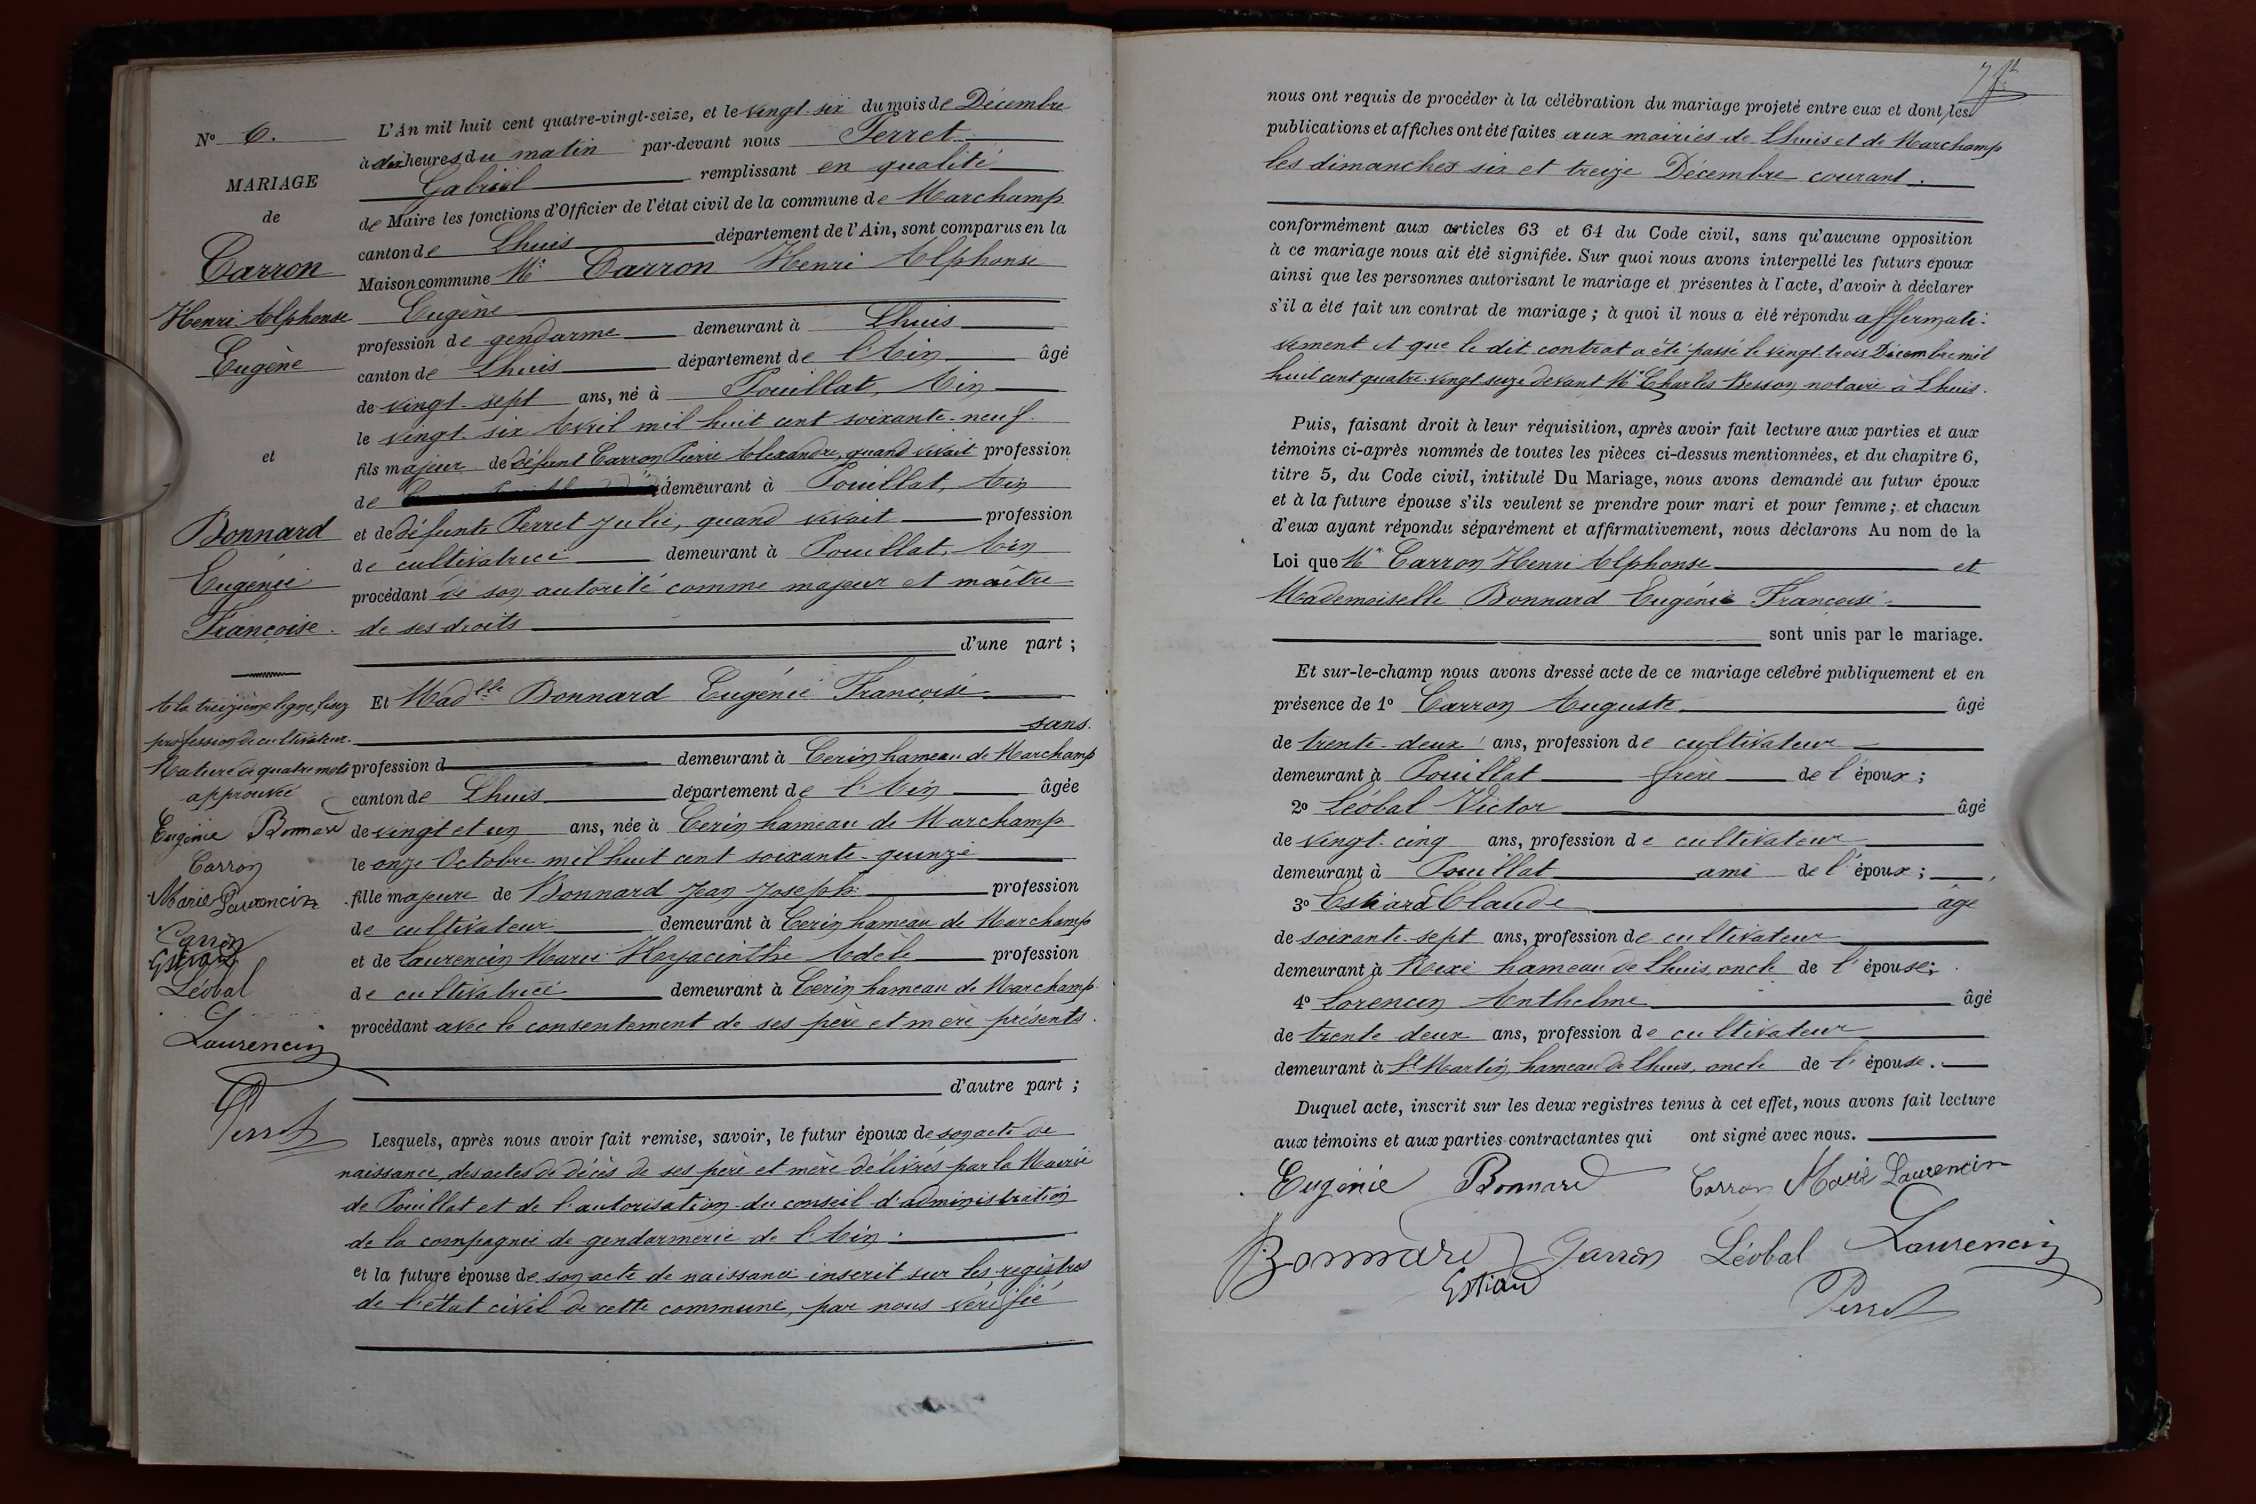 N° 6.
MARIAGE
de
Carron
Henri Alphonse
Eugène
et
Bonnard
Eugénie
Françoise.
A la treizième ligne, lisez
profession de cultivateur.
Rature de quatre mots
approuvée
Eugénie Bonnard
Carron
Marie Laurencin
Carron
Estiard
Léobal
Laurencin
Perret
L'An mil huit cent quatre-vingt-seize, et le vingt-six du mois de Décembre
à dix heures du matin par-devant nous Perret
Gabriel remplissant en qualité
de Maire les fonctions d'Officier de l'état civil de la commune de Marchamp
canton de Lhuis département de l'Ain, sont comparus en la
Maison commune Mr Carron Henri Alphonse
Eugène
profession de gendarme demeurant à Lhuis
canton de Lhuis département de l'Ain âgé
de vingt-sept ans, né à Pouillat, Ain
le vingt-six Avril mil huit cent soixante-neuf.
fils majeur de défunt Carron Pierre Alexandre, quand vivait profession
de demeurant à Pouillat, Ain
et de défunte Perret Julie, quand vivait profession
de cultivatrice demeurant à Pouillat, Ain
procédant de son autorité comme majeur et maître
de ses droits
d'une part ;
Et Madelle Bonnard Eugénie Françoise
sans
profession d demeurant à Cerin hameau de Marchamp
canton de Lhuis département de l'Ain âgée
de vingt et un ans, née à Cerin hameau de Marchamp
le onze Octobre mil huit cent soixante-quinze
fille majeure de Bonnard Jean Joseph profession
de cultivateur demeurant à Cerin hameau de Marchamp
et de Laurencin Marie Hyacinthe Adèle profession
de cultivatrice demeurant à Cerin hameau de Marchamp
procédant avec le consentement de ses père et mère présents.
d'autre part ;
Lesquels, après nous avoir fait remise, savoir, le futur époux de son acte de
naissance, des actes de décès de ses père et mère délivrés par la Mairie
de Pouillat et de l'autorisation du conseil d'administration
de la compagnie de gendarmerie de l'Ain.
et la future épouse de son acte de naissance inscrit sur les registres
de l'état civil de cette commune, par nous vérifié
nous ont requis de procéder à la célébration du mariage projeté entre eux et dont les
publications et affiches ont été faites aux mairies de Lhuis et de Marchamp
les dimanches six et treize Décembre courant.
conformément aux articles 63 et 64 du Code civil, sans qu'aucune opposition
à ce mariage nous ait été signifiée. Sur quoi nous avons interpellé les futurs époux
ainsi que les personnes autorisant le mariage et présentes à l'acte, d'avoir à déclarer
s'il a été fait un contrat de mariage ; à quoi il nous a été répondu affermati-
vement et que le dit contrat a été passé le vingt-trois Décembre mil
huit cent quatre-vingt seize devant Me Charles Besson notaire à Lhuis.
Puis, faisant droit à leur réquisition, après avoir fait lecture aux parties et aux
témoins ci-après nommés de toutes les pièces ci-dessus mentionnées, et du chapitre 6,
titre 5, du Code civil, intitulé Du Mariage, nous avons demandé au futur époux
et à la future épouse s'ils veulent se prendre pour mari et pour femme ; et chacun
d'eux ayant répondu séparément et affirmativement, nous déclarons Au nom de la
Loi que Mr Carron Henri Alphonse et
Mademoiselle Bonnard Eugénie Françoise
sont unis par le mariage.
Et sur-le-champ nous avons dressé acte de ce mariage célébré publiquement et en
présence de 1° Carron Auguste âgé
de trente-deux ans, profession de cultivateur
demeurant à Pouillat frère de l'époux ;
2° Léobal Victor âgé
de vingt-cinq ans, profession de cultivateur
demeurant à Pouillat ami de l'époux ;
3° Estiard Claude âgé
de soixante-sept ans, profession de cultivateur
demeurant à Rixe hameau de Lhuis, oncle de l'épouse ;
4° Lorencin Anthelme âgé
de trente deux ans, profession de cultivateur
demeurant à St Martin, hameau de Lhuis, oncle de l'épouse.
Duquel acte, inscrit sur les deux registres tenus à cet effet, nous avons fait lecture
aux témoins et aux parties contractantes qui ont signé avec nous.
Eugénie Bonnard Carron Marie Laurencin
Bonnard Carron Léobal Laurencin
Estiard Perret